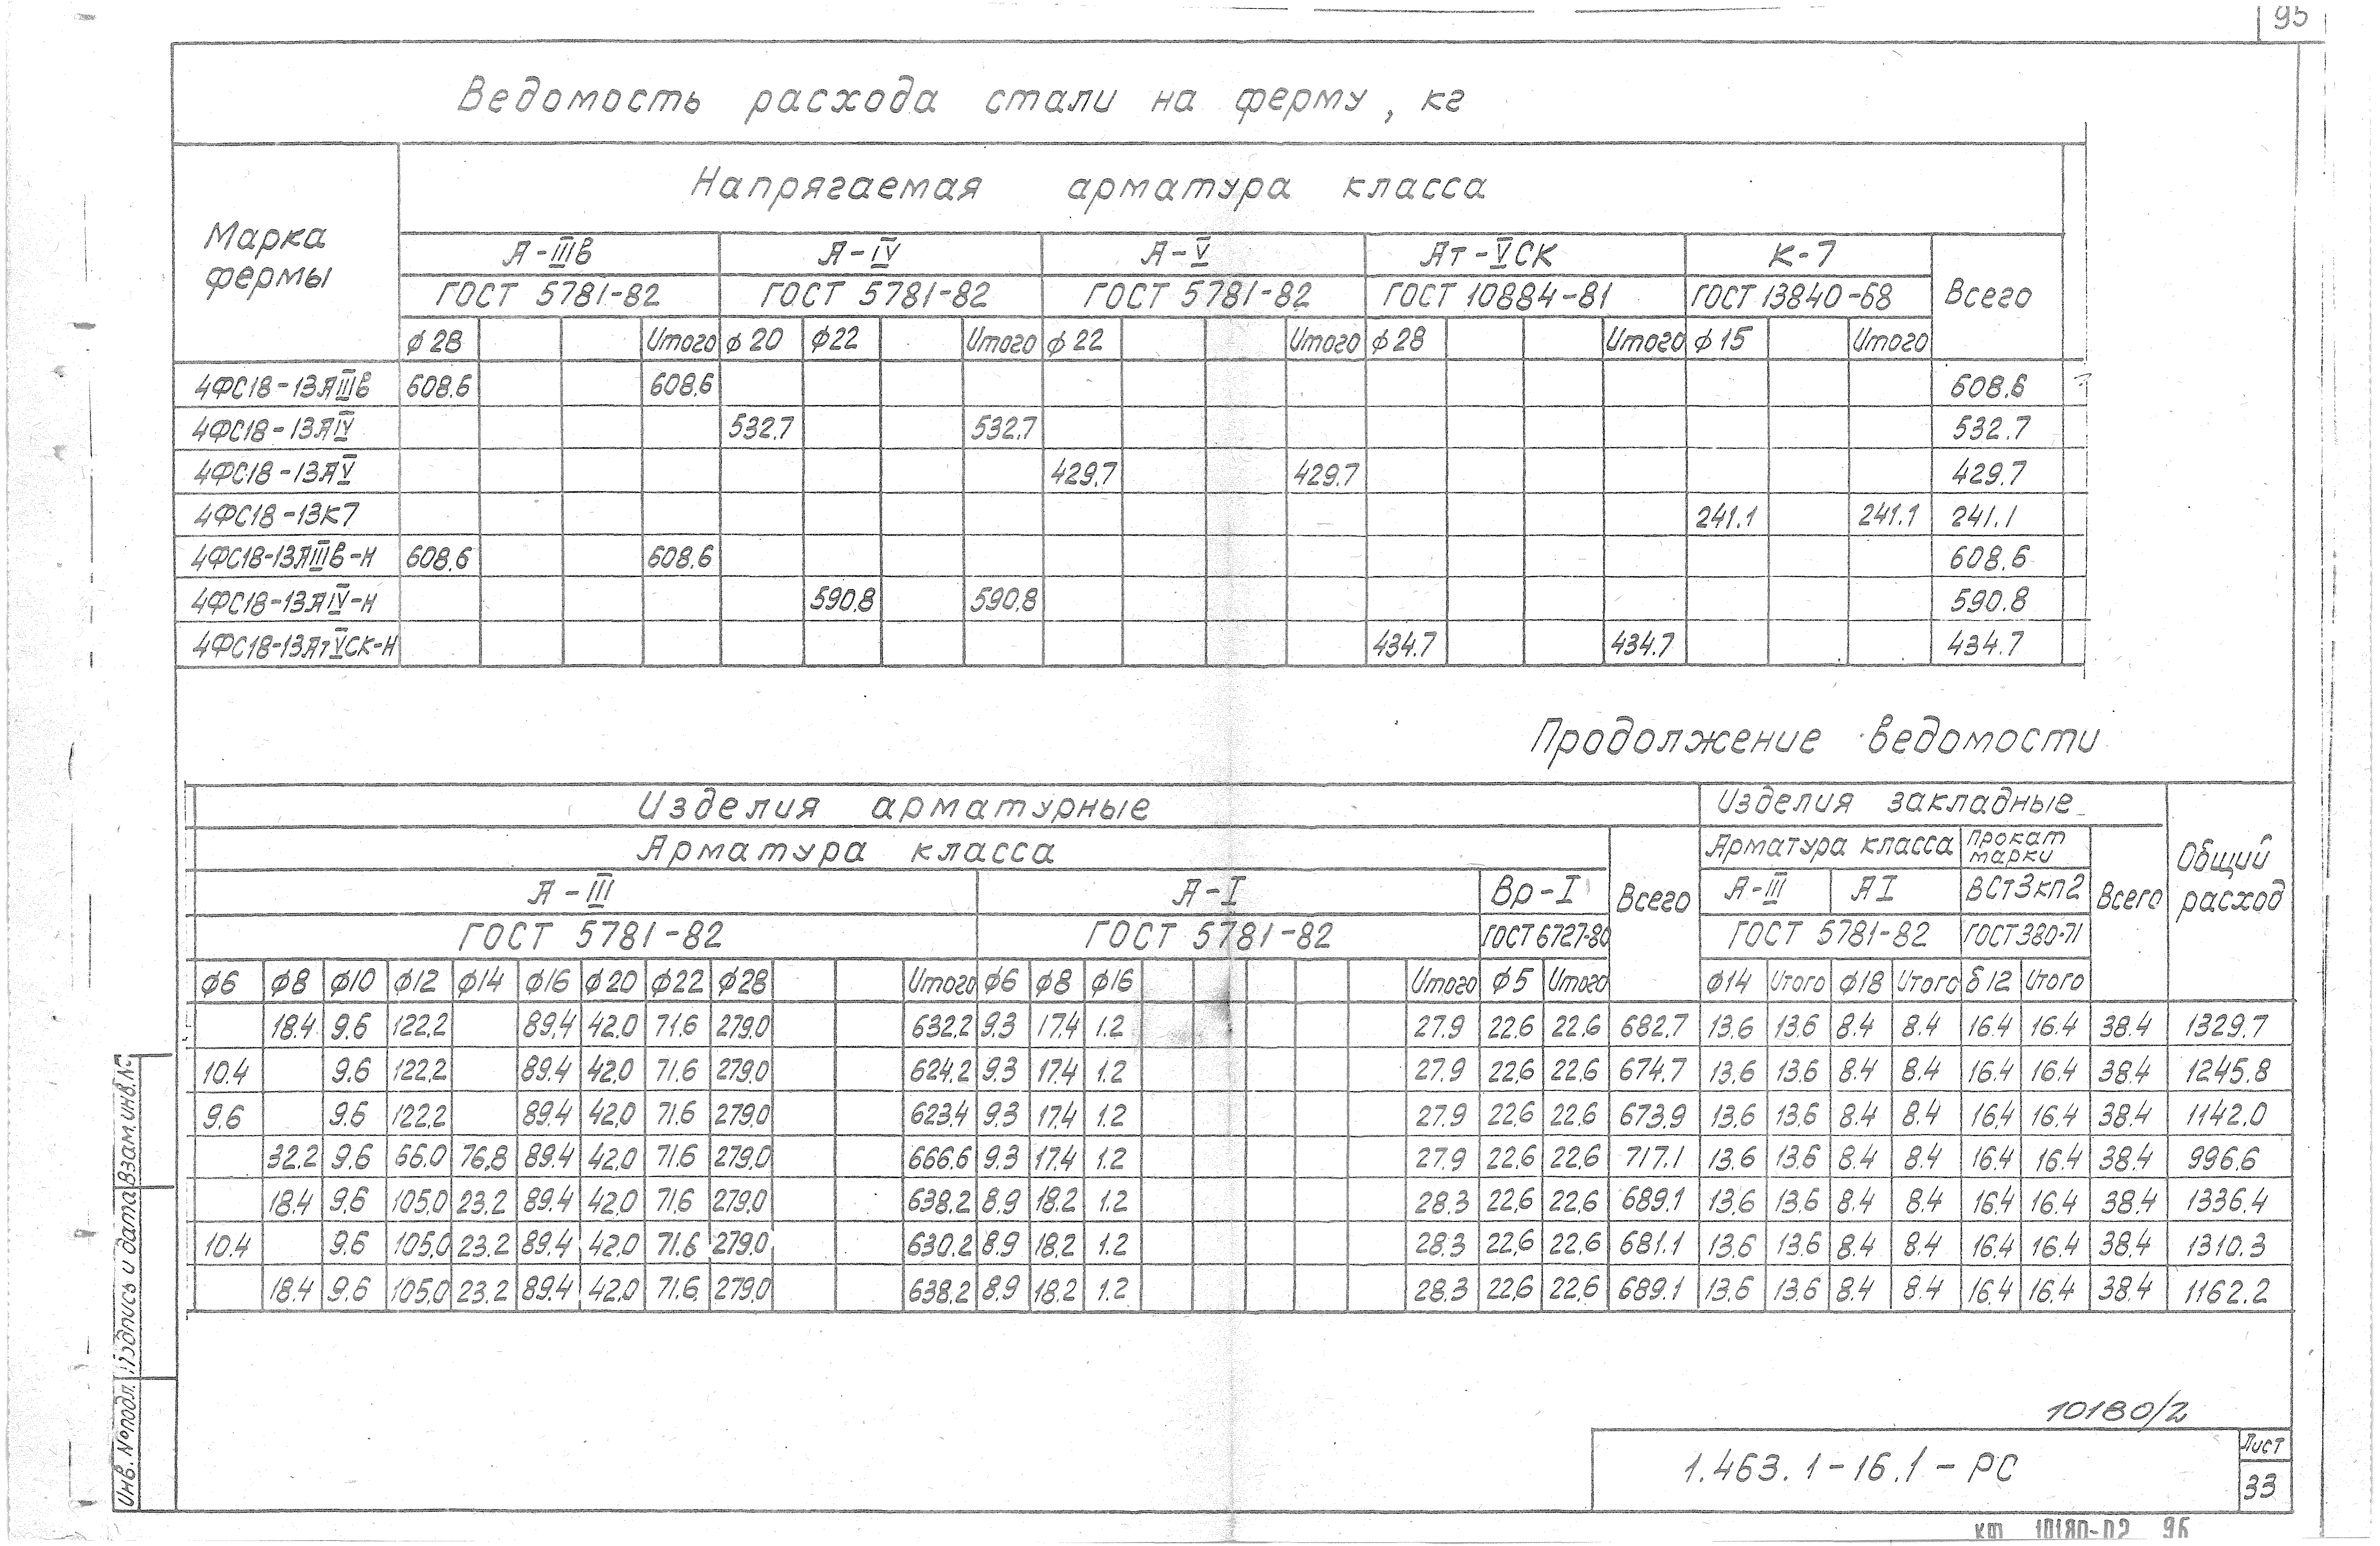 95
Ведомость расхода стали на ферму, кг
Марка фермы
Напрягаемая арматура класса
А-IIIв А-IV А-V Ат-VСК К-7 Всего
ГОСТ 5781-82 ГОСТ 5781-82 ГОСТ 5781-82 ГОСТ 10884-81 ГОСТ 13840-68
ф28 Итого ф20 ф22 Итого ф22 Итого ф28 Итого ф15 Итого
4ФС18-13АIIIв 608.6 608.6 608.6
4ФС18-13АIV 532.7 532.7 532.7
4ФС18-13АV 429.7 429.7 429.7
4ФС18-13К7 241.1 241.1 241.1
4ФС18-13АIIIв-Н 608.6 608.6 608.6
4ФС18-13АIV-Н 590.8 590.8 590.8
4ФС18-13АтVСК-Н 434.7 434.7 434.7
Продолжение ведомости
Изделия арматурные Изделия закладные Общий расход
Арматура класса Всего Арматура класса Прокат марки Всего
А-III А-I Вр-I А-III АI ВСт3кп2
ГОСТ 5781-82 ГОСТ 5781-82 ГОСТ 6727-80 ГОСТ 5781-82 ГОСТ 380-71
ф6 ф8 ф10 ф12 ф14 ф16 ф20 ф22 ф28 Итого ф6 ф8 ф16 Итого ф5 Итого ф14 Итого ф18 Итого δ12 Итого
18.4 9.6 122.2 89.4 42.0 71.6 279.0 632.2 9.3 17.4 1.2 27.9 22.6 22.6 682.7 13.6 13.6 8.4 8.4 16.4 16.4 38.4 1329.7
10.4 9.6 122.2 89.4 42.0 71.6 279.0 624.2 9.3 17.4 1.2 27.9 22.6 22.6 674.7 13.6 13.6 8.4 8.4 16.4 16.4 38.4 1245.8
9.6 9.6 122.2 89.4 42.0 71.6 279.0 623.4 9.3 17.4 1.2 27.9 22.6 22.6 673.9 13.6 13.6 8.4 8.4 16.4 16.4 38.4 1142.0
32.2 9.6 66.0 76.8 89.4 42.0 71.6 279.0 666.6 9.3 17.4 1.2 27.9 22.6 22.6 717.1 13.6 13.6 8.4 8.4 16.4 16.4 38.4 996.6
18.4 9.6 105.0 23.2 89.4 42.0 71.6 279.0 638.2 8.9 18.2 1.2 28.3 22.6 22.6 689.1 13.6 13.6 8.4 8.4 16.4 16.4 38.4 1336.4
10.4 9.6 105.0 23.2 89.4 42.0 71.6 279.0 630.2 8.9 18.2 1.2 28.3 22.6 22.6 681.1 13.6 13.6 8.4 8.4 16.4 16.4 38.4 1310.3
18.4 9.6 105.0 23.2 89.4 42.0 71.6 279.0 638.2 8.9 18.2 1.2 28.3 22.6 22.6 689.1 13.6 13.6 8.4 8.4 16.4 16.4 38.4 1162.2
Инв. № подл. Подпись и дата Взам. инв. №
10180/2
1.463.1-16.1-РС
Лист
33
кф 10180-02 96